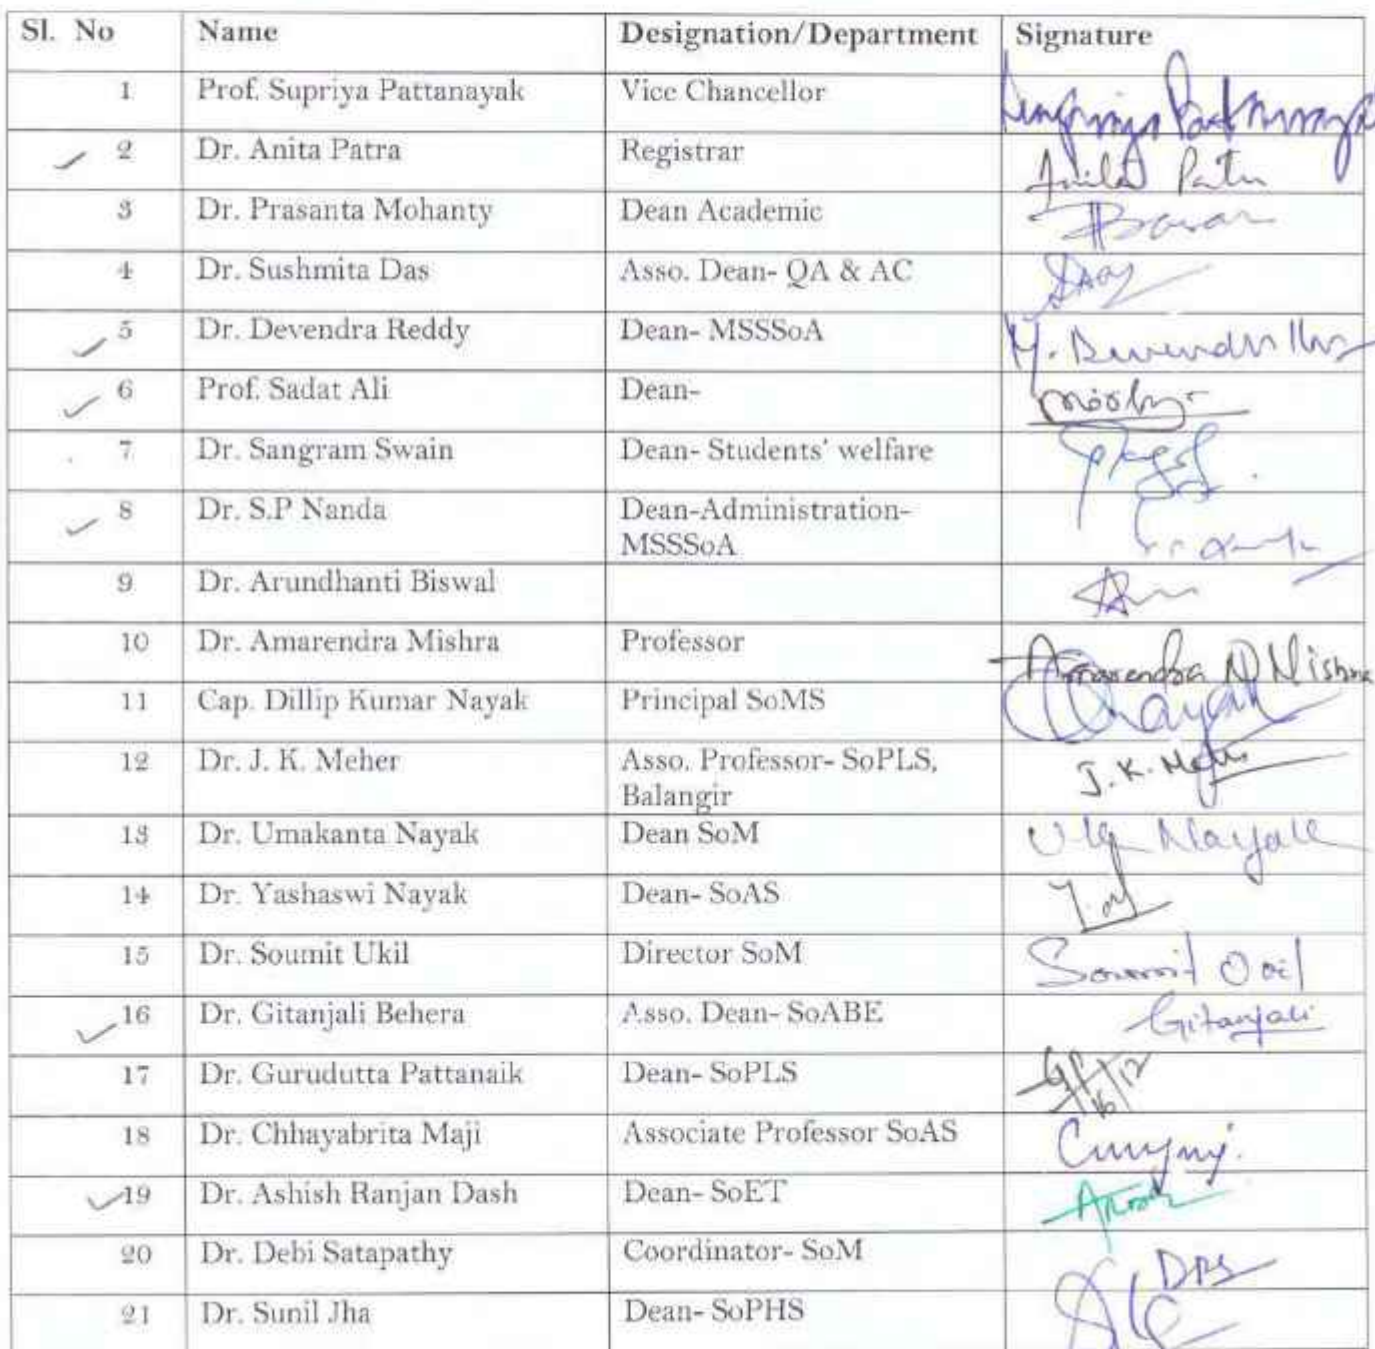 Sl. No Name Designation/Department Signature
1 Prof. Supriya Pattanayak Vice Chancellor
2 Dr. Anita Patra Registrar Anita Patra
3 Dr. Prasanta Mohanty Dean Academic
4 Dr. Sushmita Das Asso. Dean- QA & AC
5 Dr. Devendra Reddy Dean- MSSSoA
6 Prof. Sadat Ali Dean-
7 Dr. Sangram Swain Dean- Students' welfare
8 Dr. S.P Nanda Dean-Administration-
MSSSoA
9 Dr. Arundhanti Biswal
10 Dr. Amarendra Mishra Professor Amarendra N Mishra
11 Cap. Dillip Kumar Nayak Principal SoMS Nayak
12 Dr. J. K. Meher Asso. Professor- SoPLS, J. K. Meher
Balangir
13 Dr. Umakanta Nayak Dean SoM Nayak
14 Dr. Yashaswi Nayak Dean- SoAS
15 Dr. Soumit Ukil Director SoM
16 Dr. Gitanjali Behera Asso. Dean- SoABE Gitanjali
17 Dr. Gurudutta Pattanaik Dean- SoPLS 16/12
18 Dr. Chhayabrita Maji Associate Professor SoAS
19 Dr. Ashish Ranjan Dash Dean- SoET
20 Dr. Debi Satapathy Coordinator- SoM DPS
21 Dr. Sunil Jha Dean- SoPHS